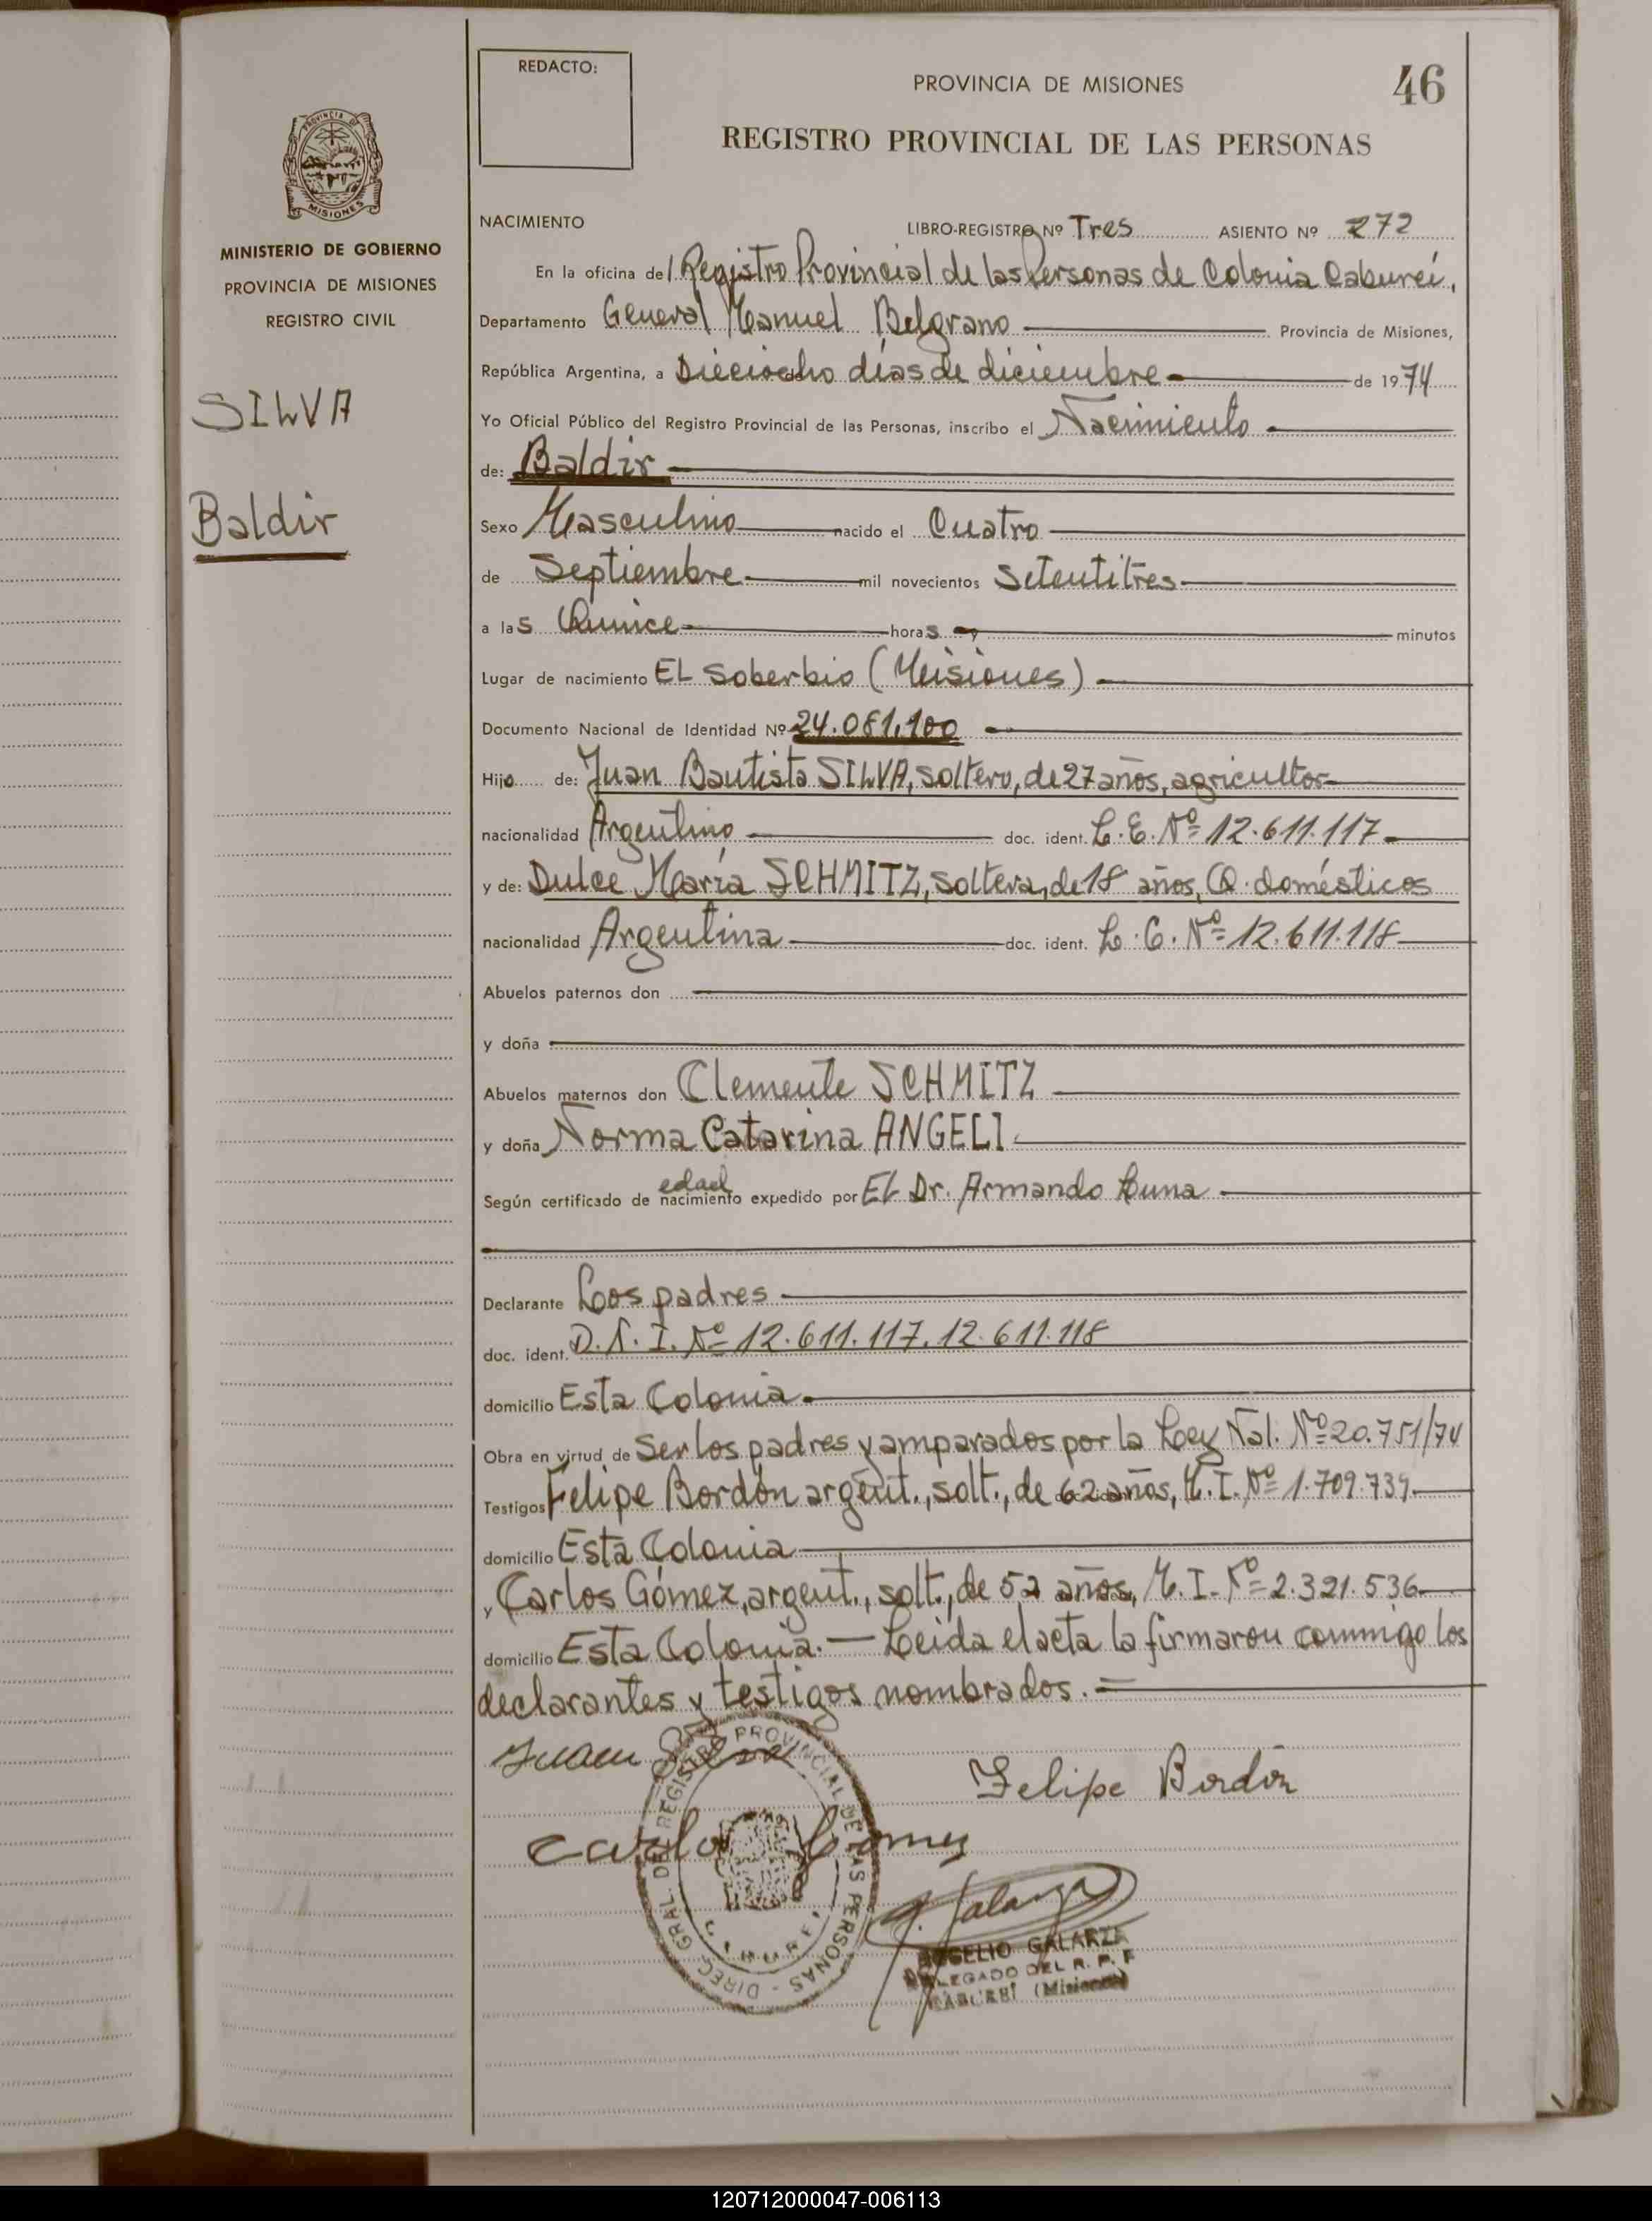 REDACTO:
PROVINCIA DE MISIONES
46
REGISTRO PROVINCIAL DE LAS PERSONAS
PROVINCIA DE
MISIONES
MINISTERIO DE GOBIERNO
PROVINCIA DE MISIONES
REGISTRO CIVIL
SILVA
Baldir
NACIMIENTO LIBRO-REGISTRO Nº Tres ASIENTO Nº 272
En la oficina del Registro Provincial de las Personas de Colonia Caburei,
Departamento General Manuel Belgrano Provincia de Misiones,
República Argentina, a Dieciocho días de diciembre de 1974
Yo Oficial Público del Registro Provincial de las Personas, inscribo el Nacimiento
de: Baldir
Sexo Masculino nacido el Cuatro
de Septiembre mil novecientos Setentitres
a las Quince horas y minutos
Lugar de nacimiento EL Soberbio (Misiones)
Documento Nacional de Identidad Nº 24.081.100
Hijo de: Juan Bautista SILVA, soltero, de 27 años, agricultor
nacionalidad Argentino doc. ident. L.E. Nº 12.611.117
y de: Dulce María SCHMITZ, soltera, de 18 años, Q. domésticos
nacionalidad Argentina doc. ident. L.C. Nº 12.611.118
Abuelos paternos don
y doña
Abuelos maternos don Clemente SCHMITZ
y doña Norma Catarina ANGELI
edad
Según certificado de nacimiento expedido por EL Dr. Armando Luna
Declarante Los padres
doc. ident. D.N.I. Nº 12.611.117. 12.611.118
domicilio Esta Colonia
Obra en virtud de Ser los padres y amparados por la Ley Nal. Nº 20.751/74
Testigos Felipe Bordón argent., solt., de 62 años, M.I. Nº 1.709.739
domicilio Esta Colonia
y Carlos Gómez, argent., solt., de 52 años, M.I. Nº 2.321.536
domicilio Esta Colonia. — Leida el acta la firmaron conmigo los
declarantes y testigos nombrados. =
Juan Silva
Felipe Bordón
Carlos Gomez
DIREC. GRAL. DEL REGISTRO PROVINCIAL DE LAS PERSONAS
R. Galarza
ROGELIO GALARZA
DELEGADO DEL R. P. P
CABUREI (Misiones)
120712000047-006113